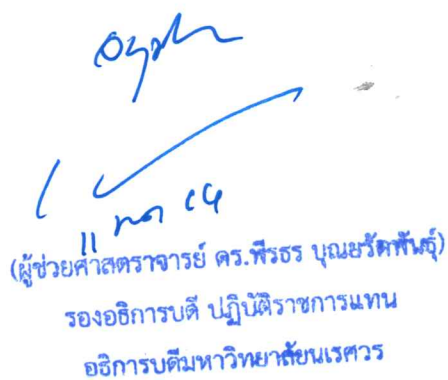 อนุมัติ
(ผู้ช่วยศาสตราจารย์ ดร.พีรธร บุณยรัตพันธุ์)
รองอธิการบดี ปฏิบัติราชการแทน
อธิการบดีมหาวิทยาลัยนเรศวร